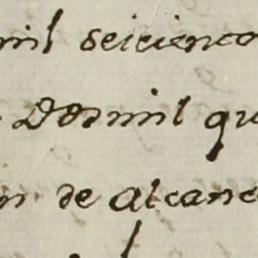 mil seiscienco
Dosmil qu
n de alcanc